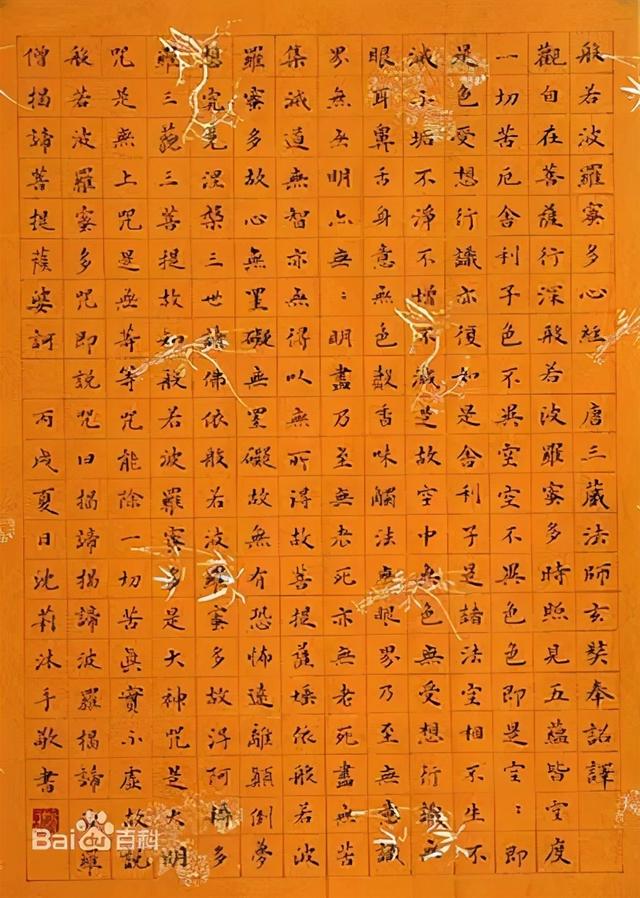 般若波羅蜜多心經 唐三藏法師玄奘奉詔譯
觀自在菩薩行深般若波羅蜜多時照見五蘊皆空度
一切苦厄舍利子色不異空空不異色色即是空：即
是色受想行識亦復如是舍利子是諸法空相不生不
滅不垢不淨不增不減是故空中無色無受想行識無
眼耳鼻舌身意無色聲香味觸法無眼界乃至無意識
界無無明亦無：明盡乃至無老死亦無老死盡無苦
集滅道無智亦無得以無所得故菩提薩埵依般若波
羅蜜多故心無罣礙無罣礙故無有恐怖遠離顛倒夢
想究竟涅槃三世諸佛依般若波羅蜜多故得阿耨多
羅三藐三菩提故知般若波羅蜜多是大神咒是大明
咒是無上咒是無等等咒能除一切苦真實不虛故說
般若波羅蜜多咒即說咒曰揭諦揭諦波羅揭諦波羅
僧揭諦菩提薩婆訶 丙戌夏日沈莉沐手敬書
Bai百科